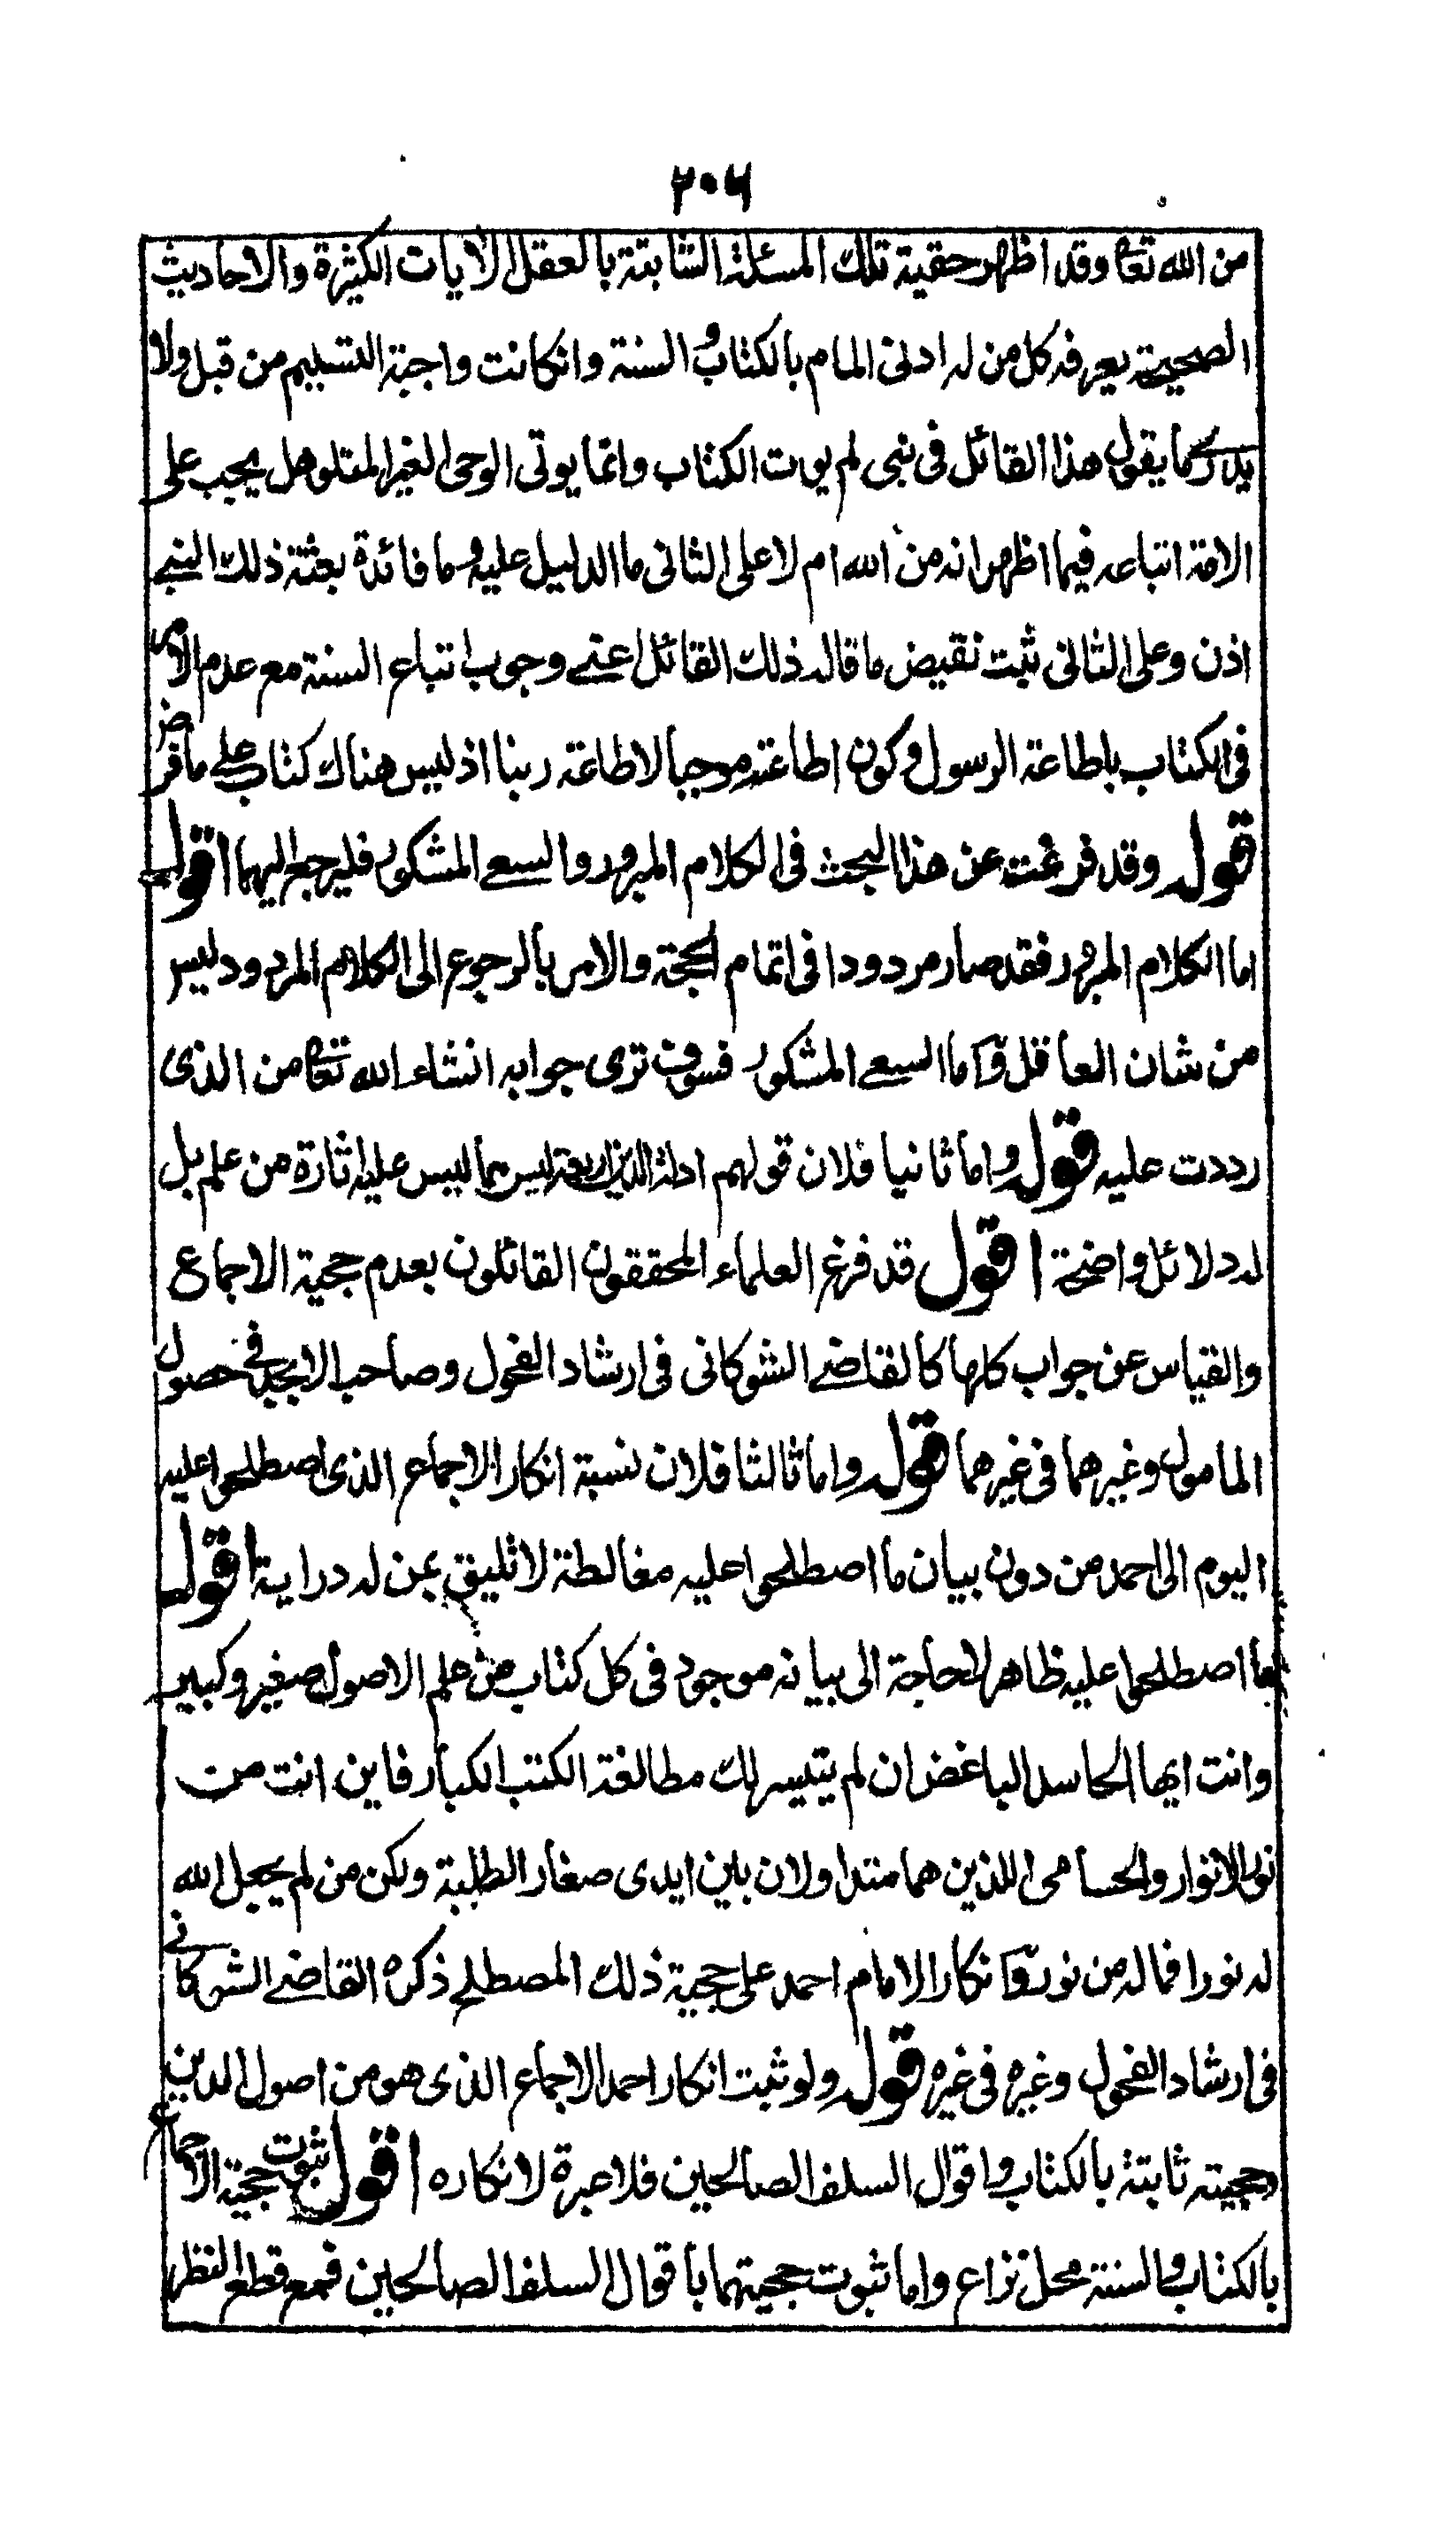 ۲۰۶
من الله تعالى وقد اظهر حقية تلك المسئلة الثابتة بالعقل الايات الكثيرة والاحاديث
الصحيحة يعرفه كل من له ادنى المام بالكتاب والسنة وانكانت واجبة التسليم من قبل ولا
يدرى ما يقول هذا القائل فى نبى لم يوت الكتاب وانما يوتى الوحى الغير المتلو هل يجب على
الامة اتباعه فيما اظهر انه من الله ام لا على الثانى ما الدليل عليه وما فائدة بعثة ذلك النبى
اذن وعلى الثانى ثبت نقيض ما قاله ذلك القائل اعنى وجوب اتباع السنة مع عدم الامر
فى الكتاب باطاعة الرسول وكون اطاعته موجبا لاطاعة ربنا اذ ليس هناك كتاب على ما فرض
قوله وقد فرغت عن هذا البحث فى الكلام المبرور والسعى المشكور فليرجع اليهما اقول
اما الكلام المبرور فقد صار مردودا فى اتمام الحجة والامر بالرجوع الى الكلام المردود ليس
من شان العاقل واما السعى المشكور فسوف ترى جوابه انشاء الله تعالى من الذى
رددت عليه قوله واما ثانيا فلان قولهم ادلة الدين اربعة ليس مما ليس عليه اثارة من علم بل
له دلائل واضحة اقول قد فرغ العلماء المحققون القائلون بعدم حجية الاجماع
والقياس عن جواب كلها كالقاضى الشوكانى فى ارشاد الفحول وصاحب الابجد فى حصول
المامول وغيرهما فى غيرهما قوله واما ثالثا فلان نسبة انكار الاجماع الذى اصطلحوا عليه
اليوم الى احمد من دون بيان ما اصطلحوا عليه مغالطة لا تليق بمن له دراية اقول
ما اصطلحوا عليه ظاهر لا حاجة الى بيانه موجود فى كل كتاب من علم الاصول صغير وكبير
وانت ايها الحاسد الباغض ان لم يتيسر لك مطالعة الكتب الكبار فاين انت من
نور الانوار والحسامى اللذين هما متداولان بين ايدى صغار الطلبة ولكن من لم يجعل الله
له نورا فما له من نور وانكار الامام احمد على حجية ذلك المصطلح ذكره القاضى الشوكانى
فى ارشاد الفحول وغيره فى غيره قوله ولو ثبت انكار احمد الاجماع الذى هو من اصول الدين
وحجيته ثابتة بالكتاب واقوال السلف الصالحين فلا عبرة لانكاره اقول ثبوت حجية الاجماع
بالكتاب والسنة محل نزاع واما ثبوت حجيتهما باقوال السلف الصالحين فمع قطع النظر